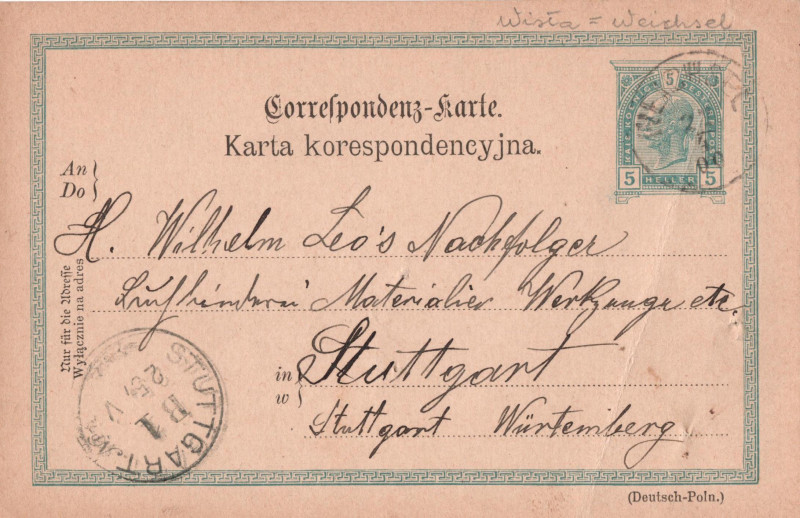 Wisła = Weichsel
Correſpondenz-Karte.
Karta korespondencyjna.
5
KAIS. KÖNIGL. ÖSTERR. POST
5 HELLER 5
An
Do
H. Wilhelm Leo's Nachfolger
Materialien Werkzeuge etc.
in Stuttgart
w
Stuttgart Würtemberg
Nur für die Adreſſe
Wyłącznie na adres
STUTTGART
B1
(Deutsch-Poln.)